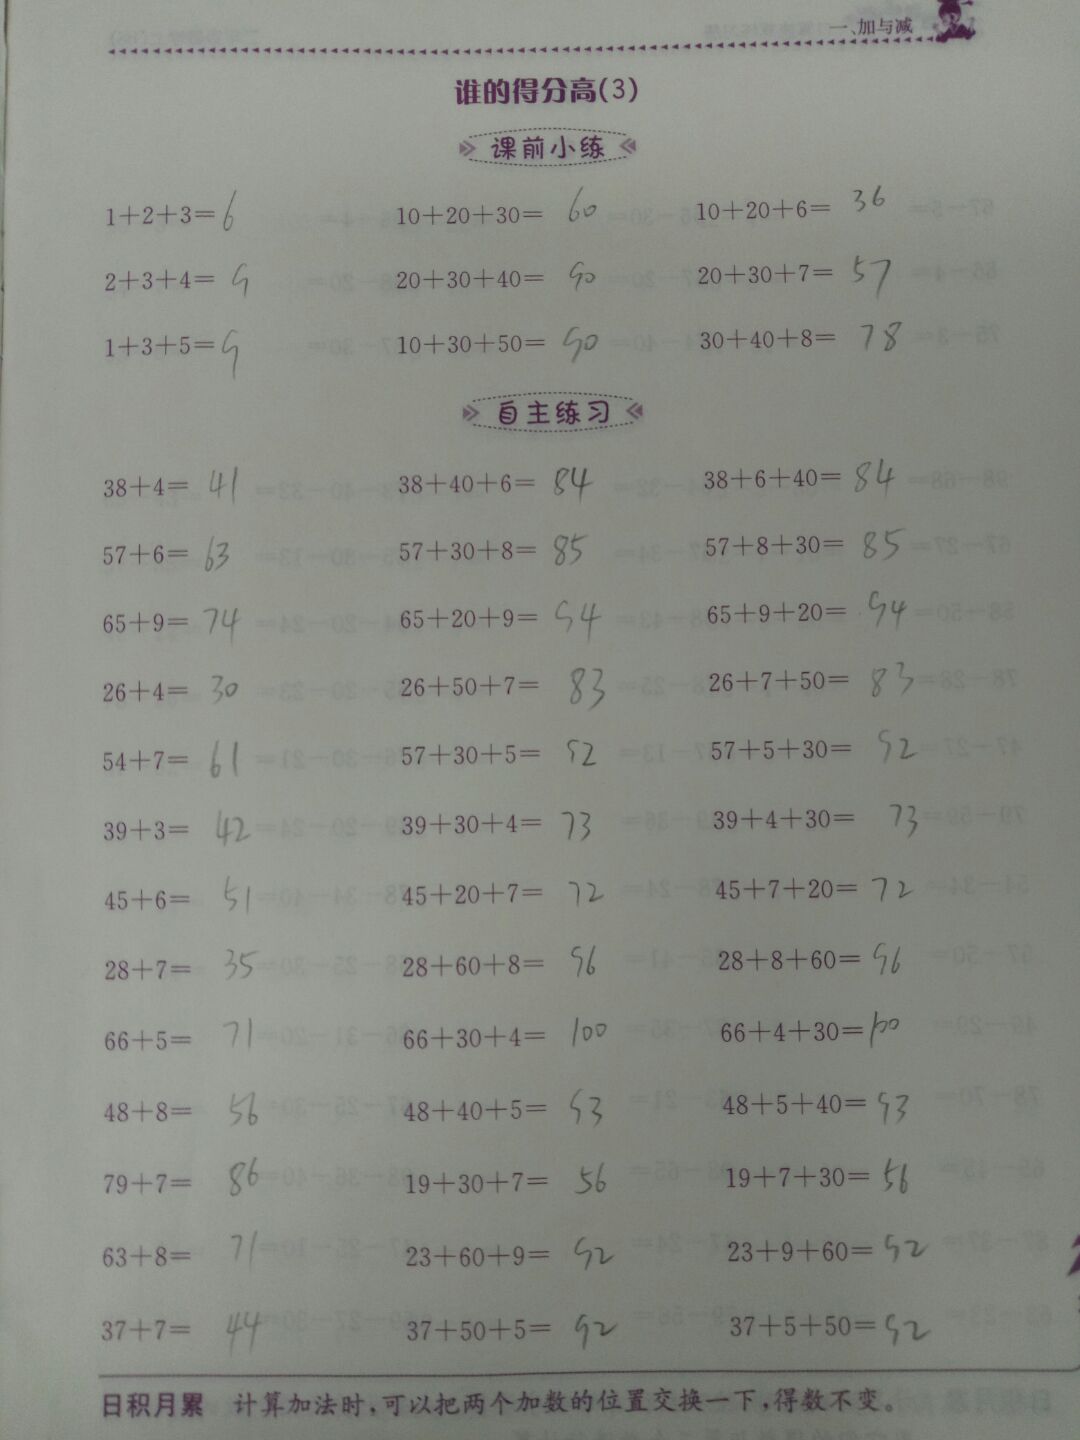 一、加与减
谁的得分高(3)
课前小练
1+2+3= 6 10+20+30= 60 10+20+6= 36
2+3+4= 9 20+30+40= 90 20+30+7= 57
1+3+5= 9 10+30+50= 90 30+40+8= 78
自主练习
38+4= 41 38+40+6= 84 38+6+40= 84
57+6= 63 57+30+8= 85 57+8+30= 85
65+9= 74 65+20+9= 94 65+9+20= 94
26+4= 30 26+50+7= 83 26+7+50= 83
54+7= 61 57+30+5= 92 57+5+30= 92
39+3= 42 39+30+4= 73 39+4+30= 73
45+6= 51 45+20+7= 72 45+7+20= 72
28+7= 35 28+60+8= 96 28+8+60= 96
66+5= 71 66+30+4= 100 66+4+30= 100
48+8= 56 48+40+5= 93 48+5+40= 93
79+7= 86 19+30+7= 56 19+7+30= 56
63+8= 71 23+60+9= 92 23+9+60= 92
37+7= 44 37+50+5= 92 37+5+50= 92
日积月累 计算加法时,可以把两个加数的位置交换一下,得数不变。